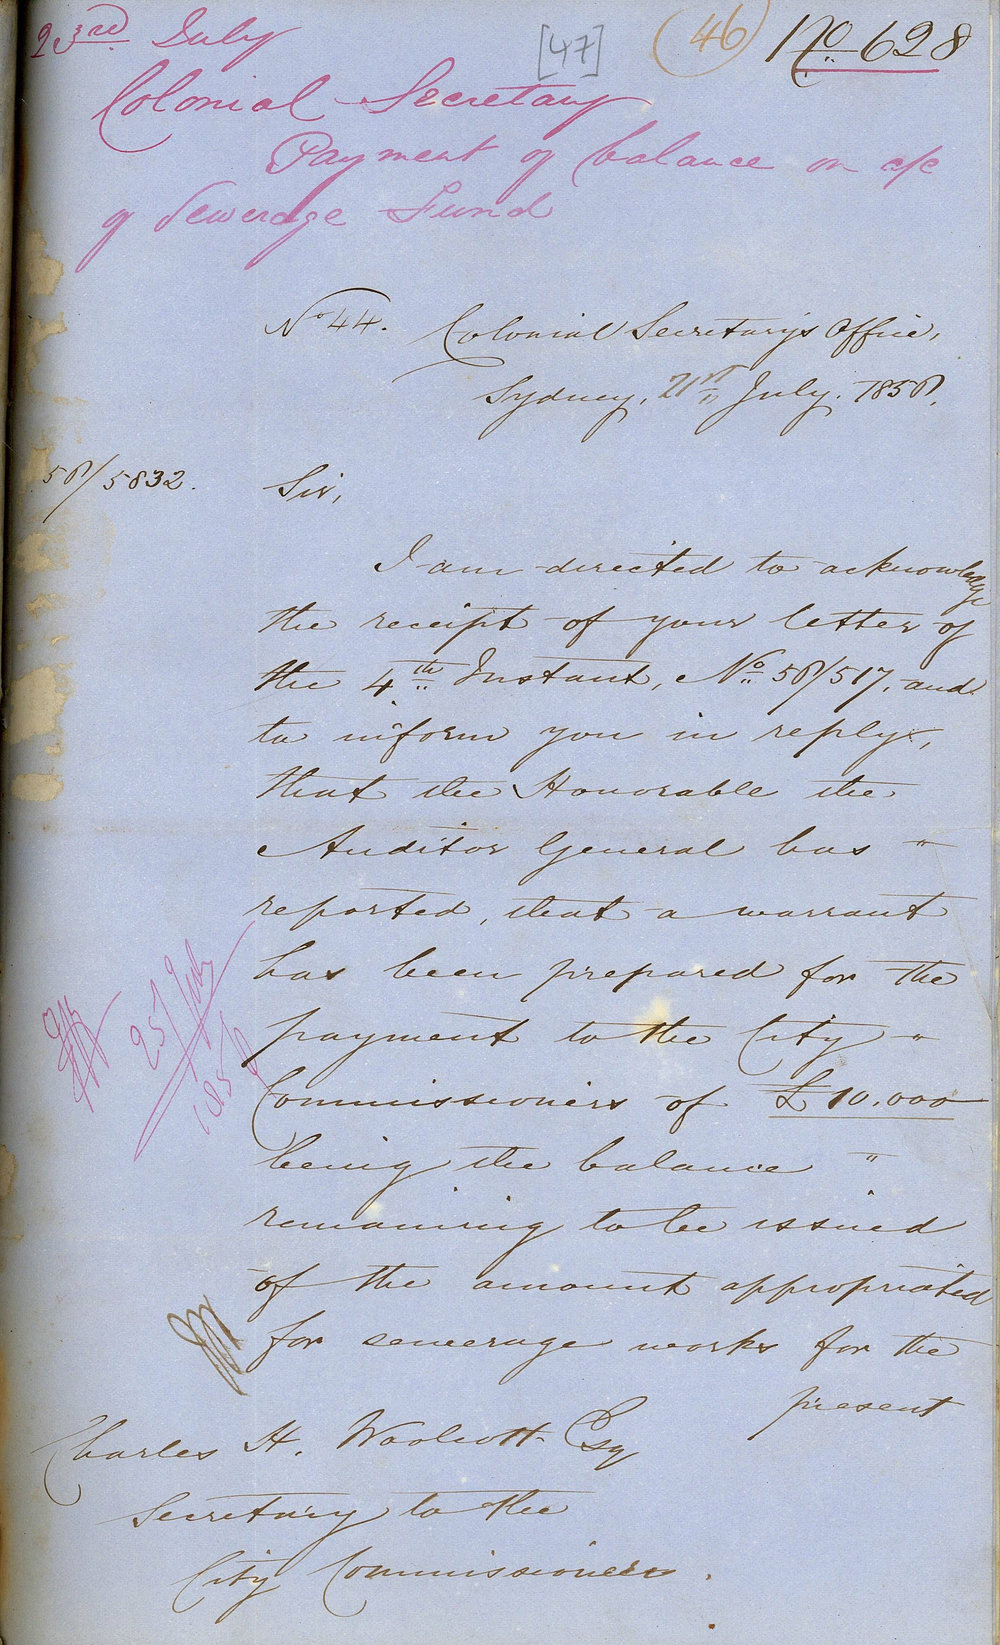 23rd July
[47]
46
No 628
Colonial Secretary
Payment of balance on a/c
of Sewerage Fund
No 44.
Colonial Secretary's Office,
Sydney, 21st July, 1856.
56/5832.
Sir,
I am directed to acknowledge
the receipt of your letter of
the 4th Instant, No. 56/517, and
to inform you in reply,
that the Honorable the
Auditor General has "
reported, that a warrant
has been prepared for the
payment to the City "
Commissioners of £10.000
being the balance "
remaining to be issued
of the amount appropriated
for sewerage works for the
present
25 July
1856
Charles H. Woolcott Esq
Secretary to the
City Commissioners.